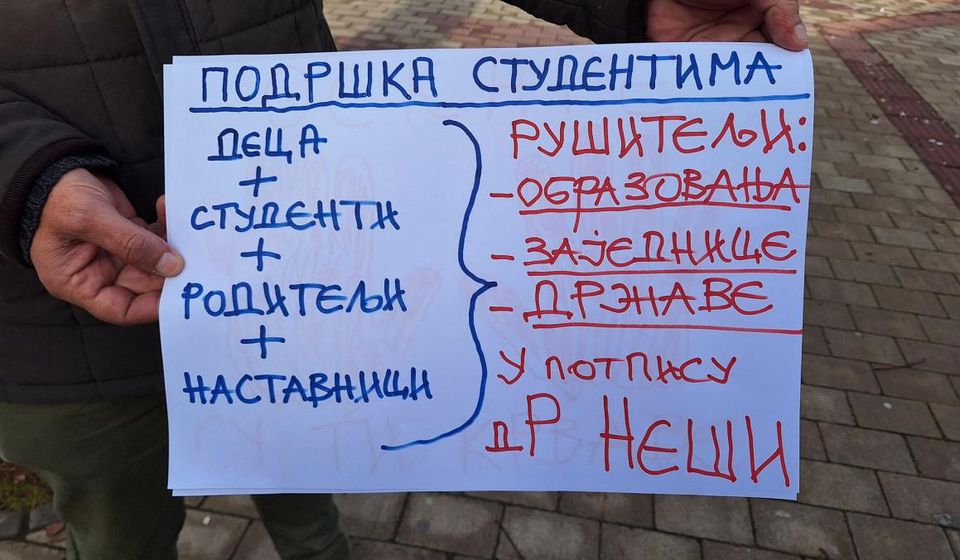 ПОДРШКА СТУДЕНТИМА
ДЕЦА
+
СТУДЕНТИ
+
РОДИТЕЉИ
+
НАСТАВНИЦИ
РУШИТЕЉИ:
- ОБРАЗОВАЊА
- ЗАЈЕДНИЦЕ
- ДРЭНАВЕ
У ПОТПИСУ
ДР НЕШИ